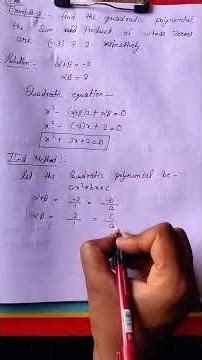 find the quadratic polynomial
the Sum and Product of whose zeroes
are (-3) & 2 respectively.
Solution:-
α+β = -3
αβ = 2
Quadratic equation —
x² - (α+β)x + αβ = 0
x² - (-3)x + 2 = 0
x² + 3x + 2 = 0
IInd Method:-
let the Quadratic polynomial be -
ax² + bx + c
α+β = -3/1 = -b/a
αβ = 2/1 = c/a